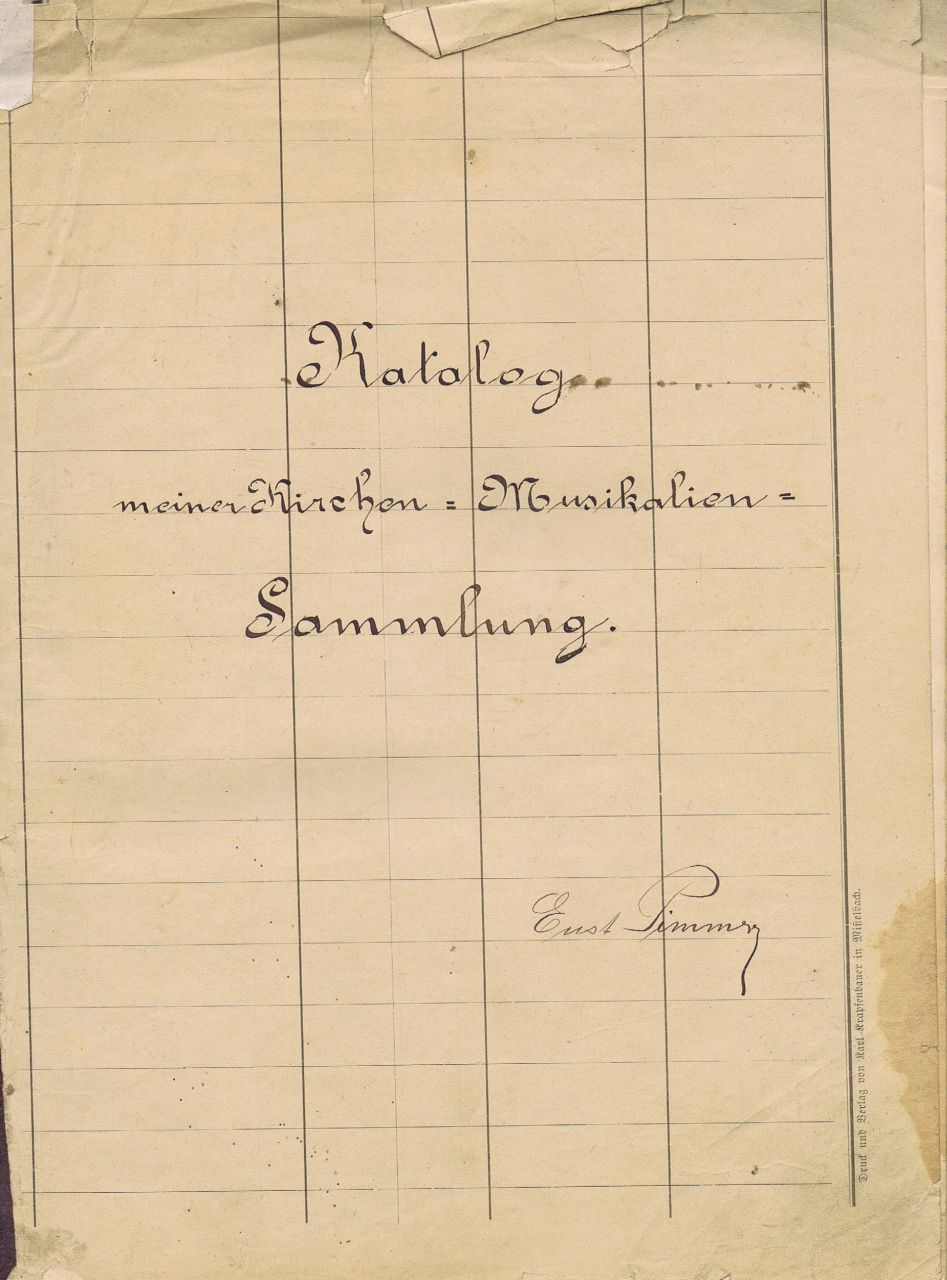 Katalog
meiner Kirchen = Musikalien =
Sammlung.
Ernst Pimmer
Druck und Verlag von Karl Krapfenbauer in Mistelbach.